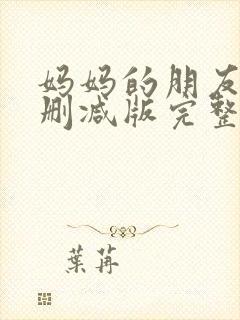 妈妈的朋友
删减版完整
葉苒